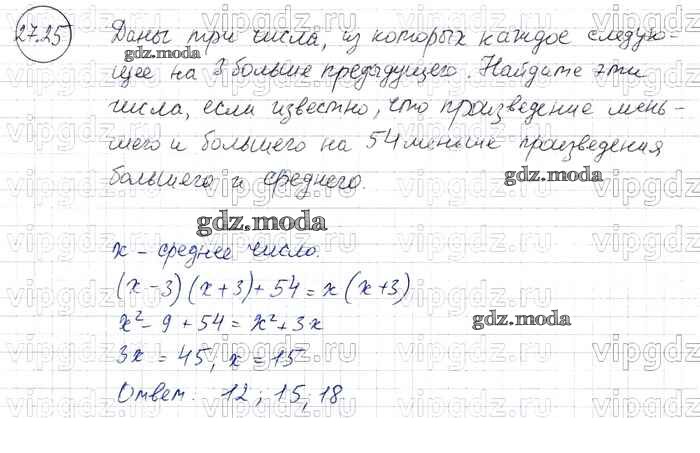 27.25
Даны три числа, из которых каждое следую-
gdz.moda
щее на 3 больше предыдущего. Найдите эти
числа, если известно, что произведение мень-
шего и большего на 54 меньше произведения
большего и среднего.
gdz.moda
gdz.moda
x - среднее число.
(x - 3)(x + 3) + 54 = x (x + 3)
x² - 9 + 54 = x² + 3x
gdz.moda
3x = 45, x = 15
Ответ: 12; 15, 18
vipgdz.ru